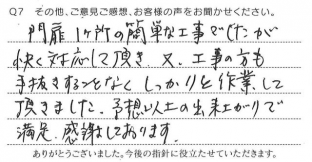 Q7 その他、ご意見ご感想、お客様の声をお聞かせください。
門扉1ヶ所の簡単な工事でしたが
快く対応して頂き 又、工事の方も
手抜きすることなく しっかりと作業して
頂きました。予想以上の出来上がりで
満足、感謝しております。
ありがとうございました。今後の指針に役立たせていただきます。